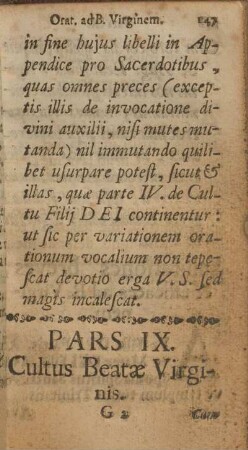 Orat. ad B. Virginem. 147
in fine hujus libelli in Ap-
pendice pro Sacerdotibus,
quas omnes preces (excep-
tis illis de invocatione di-
vini auxilii, nisi mutes mu-
tanda) nil immutando quili-
bet usurpare potest, sicut &
illas, quæ parte IV. de Cul-
tu Filij DEI continentur:
ut sic per variationem ora-
tionum vocalium non tepe-
scat devotio erga V. S. sed
magis incalescat.
PARS IX.
Cultus Beatæ Virgi-
nis.
G 2 Cum